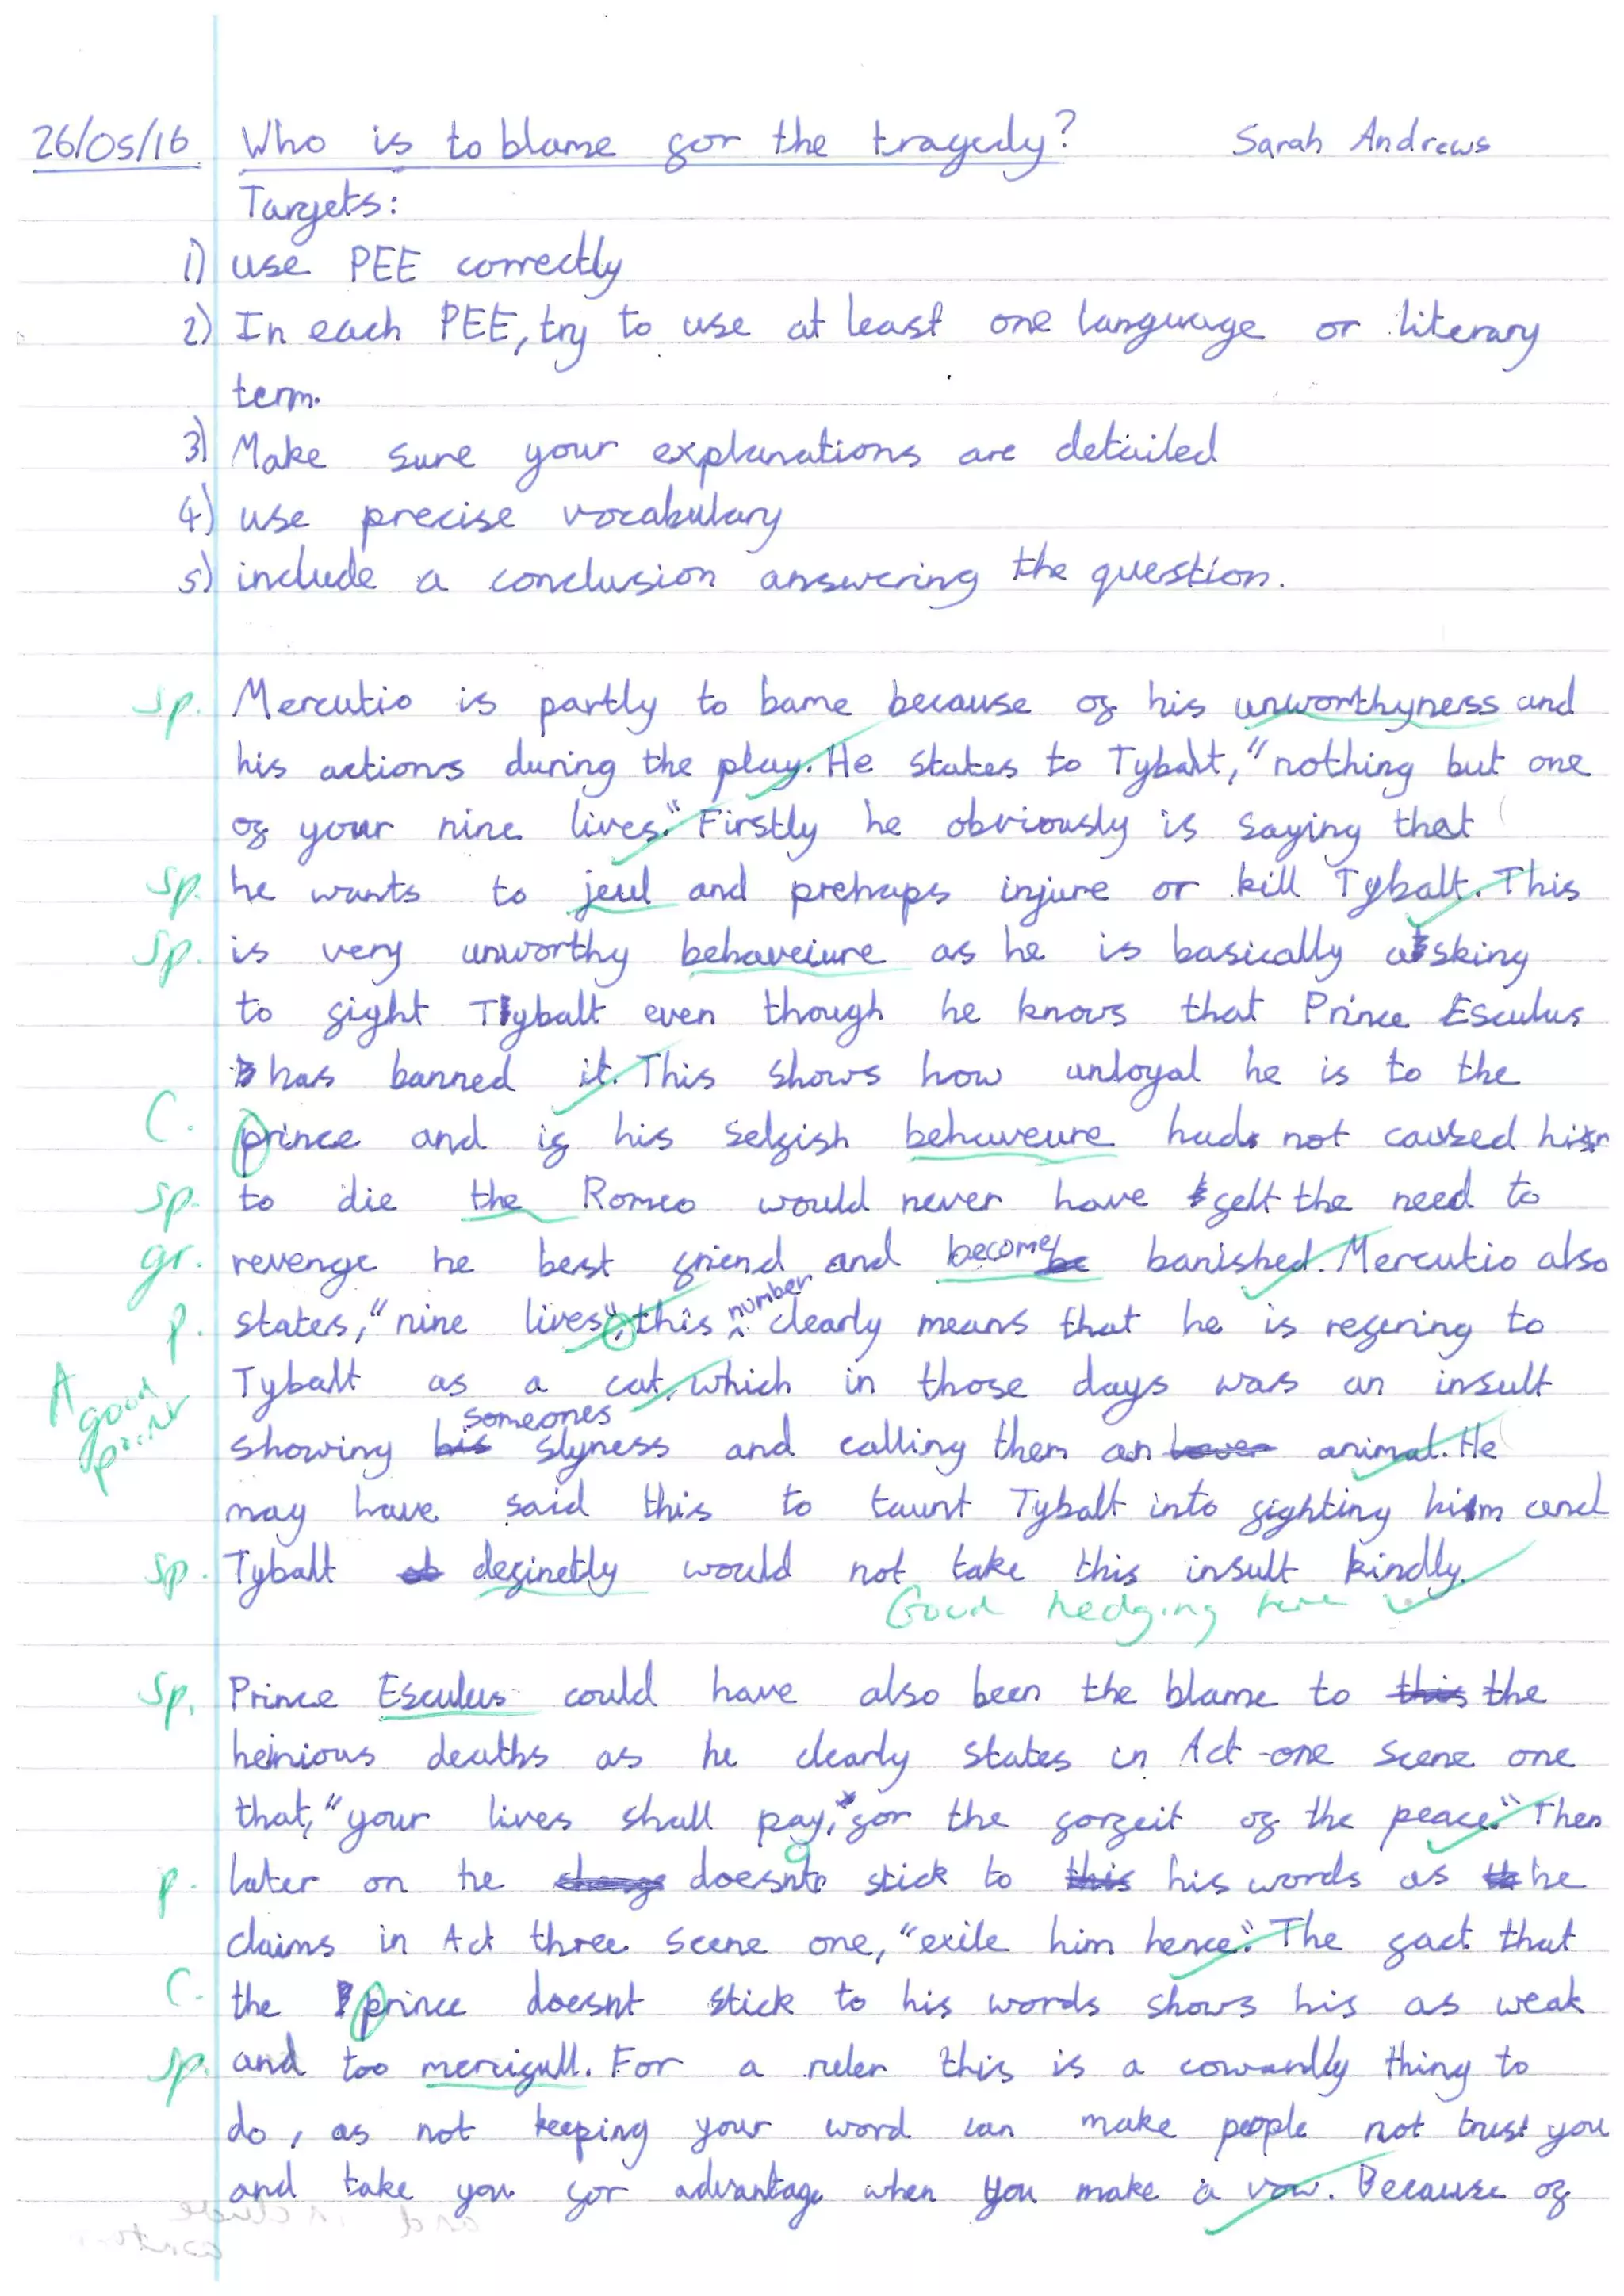 26/05/16 Who is to blame for the tragedy? Sarah Andrews
Targets:
1) use PEE correctly
2) In each PEE, try to use at least one language or literary
term.
3) Make sure your explanations are detailed
4) use precise vocabulary
5) include a conclusion answering the question.
sp. Mercutio is partly to bame because of his unworthyness and
his actions during the play. He states to Tybalt, "nothing but one
of your nine lives." Firstly he obviously is saying that
sp. he wants to jeul and prehaps injure or kill Tybalt. This
sp. is very unworthy behaveiure as he is basically asking
to fight Tybalt even though he knows that Prince Esculus
has banned it. This shows how unloyal he is to the
C. prince and if his selfish behaveure had not caused him
sp. to die the Romeo would never have felt the need to
gr. revenge he best friend and become banished. Mercutio also
p. states, "nine lives", this number clearly means that he is refering to
A good point Tybalt as a cat, which in those days was an insult
showing someones slyness and calling them an animal. He
may have said this to taunt Tybalt into fighting him and
sp. Tybalt definetly would not take this insult kindly.
Good hedging here
sp. Prince Esculus could have also been the blame to the
heinious deaths as he clearly states in Act one scene one
that, "your lives shall pay, for the forfeit of the peace." Then
p. later on he doesnt stick to his words as he
claims in Act three scene one, "exile him hence". The fact that
C. the prince doesnt stick to his words shows his as weak
sp. and too mercifull. For a ruler this is a cowardly thing to
do, as not keeping your word can make people not trust you
and take you for advantage when you make a vow. Because of